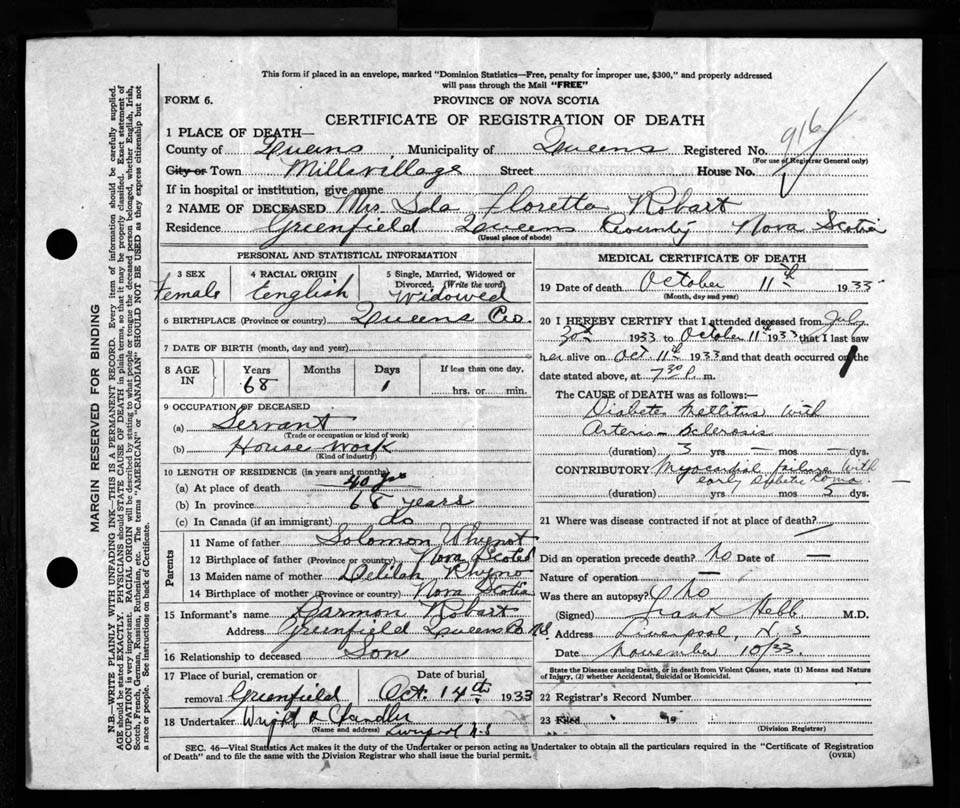 This form if placed in an envelope, marked "Dominion Statistics—Free, penalty for improper use, $300," and properly addressed
will pass through the Mail "FREE"
FORM 6.
PROVINCE OF NOVA SCOTIA
CERTIFICATE OF REGISTRATION OF DEATH
916
1 PLACE OF DEATH—
County of Queens Municipality of Queens Registered No.
(For use of Registrar General only)
City or Town Millsvillage Street House No.
If in hospital or institution, give name
2 NAME OF DECEASED Mrs. Ida Floretta Robart
Residence Greenfield Queens County Nova Scotia
(Usual place of abode)
PERSONAL AND STATISTICAL INFORMATION
3 SEX Female
4 RACIAL ORIGIN English
5 Single, Married, Widowed or
Divorced. (Write the word)
Widowed
6 BIRTHPLACE (Province or country) Queens Co.
7 DATE OF BIRTH (month, day and year)
8 AGE IN Years 68 Months Days 1 If less than one day,
hrs. or min.
9 OCCUPATION OF DECEASED
(a) Servant
(Trade or occupation or kind of work)
(b) House Work
(Kind of industry)
10 LENGTH OF RESIDENCE (in years and months)
(a) At place of death 40 yrs
(b) In province 68 years
(c) In Canada (if an immigrant) do
Parents
11 Name of father Solomon Whynot
12 Birthplace of father (Province or country) Nova Scotia
13 Maiden name of mother Delilah
14 Birthplace of mother (Province or country) Nova Scotia
15 Informant's name Harmon Robart
Address Greenfield Queens Co N.S.
16 Relationship to deceased Son
17 Place of burial, cremation or Date of burial
removal Greenfield Oct. 14th 1933
18 Undertaker Wright & Chandler
(Name and address) Liverpool N.S
MEDICAL CERTIFICATE OF DEATH
19 Date of death October 11th 1933
(Month, day and year)
20 I HEREBY CERTIFY that I attended deceased from July
30th 1933 to October 11th 1933 that I last saw
her alive on Oct 11th 1933 and that death occurred on the
date stated above, at 7 30 P. m.
The CAUSE of DEATH was as follows:—
Diabetes Mellitus with
Arterio-Sclerosis
(duration) 3 yrs — mos — dys.
CONTRIBUTORY Myocardial failure with
early Diabetic Coma
(duration) yrs — mos 5 dys.
21 Where was disease contracted if not at place of death? —
Did an operation precede death? No Date of —
Nature of operation —
Was there an autopsy? No
(Signed) Frank Hebb M.D.
Address Liverpool, N.S
Date November 10/33.
State the Disease causing Death, or in death from Violent Causes, state (1) Means and Nature
of Injury, (2) whether Accidental, Suicidal or Homicidal.
22 Registrar's Record Number
23 Filed 19
(Division Registrar)
SEC. 46—Vital Statistics Act makes it the duty of the Undertaker or person acting as Undertaker to obtain all the particulars required in the "Certificate of Registration
of Death" and to file the same with the Division Registrar who shall issue the burial permit. (OVER)
MARGIN RESERVED FOR BINDING
N.B.—WRITE PLAINLY WITH UNFADING INK—THIS IS A PERMANENT RECORD. Every item of information should be carefully supplied.
AGE should be stated EXACTLY. PHYSICIANS should STATE CAUSE OF DEATH in plain terms, so that it may be properly classified. Exact statement of
OCCUPATION is very important. RACIAL ORIGIN will be described by stating to what people or tongue the deceased person belonged, whether English, Irish,
Scotch, French, German, Russian, Ruthenian, etc. The terms "AMERICAN" or "CANADIAN" SHOULD NOT BE USED as they express citizenship but not
a race or people. See instructions on back of Certificate.